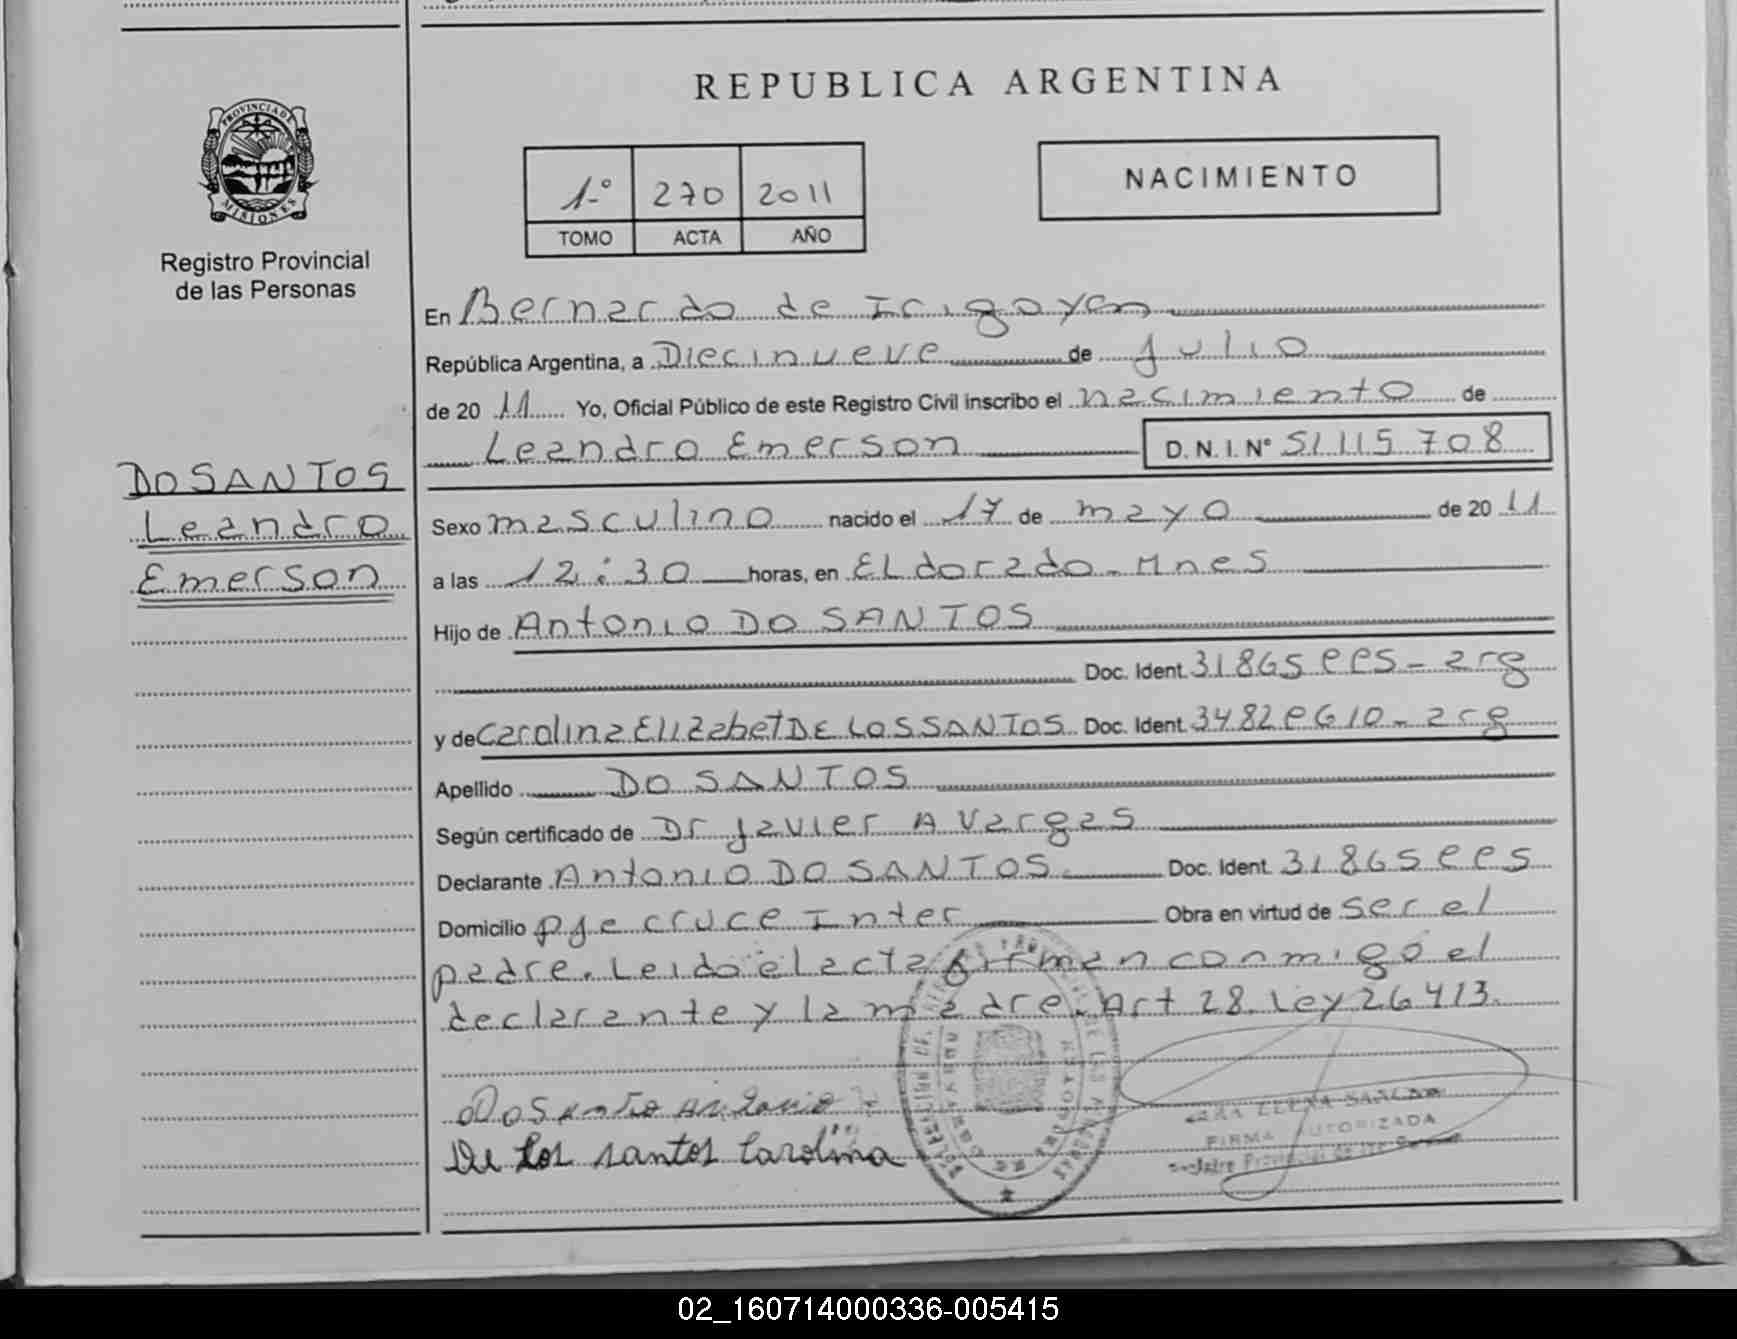 REPUBLICA ARGENTINA
PROVINCIA DE
MISIONES
Registro Provincial
de las Personas
1º 270 2011
TOMO ACTA AÑO
NACIMIENTO
En Bernardo de Irigoyen
República Argentina, a Diecinueve de Julio
de 20 11 Yo, Oficial Público de este Registro Civil inscribo el nacimiento de
Leandro Emerson D.N.I. Nº 51115708
DO SANTOS
Leandro
Emerson
Sexo masculino nacido el 17 de mayo de 20 11
a las 12:30 horas, en ELdorado-Mnes
Hijo de Antonio DO SANTOS
Doc. Ident. 31865ees-arg
y de Carolina Elizabet DE LOS SANTOS Doc. Ident. 3482e610-arg
Apellido DO SANTOS
Según certificado de Dr Javier A Vargas
Declarante Antonio DO SANTOS Doc. Ident. 31865ees
Domicilio pje cruce Inter Obra en virtud de ser el
padre. Leido el acta firman conmigo el
declarante y la madre. Art 28. Ley 26413.
De Los santos Carolina
FIRMA AUTORIZADA
02_160714000336-005415